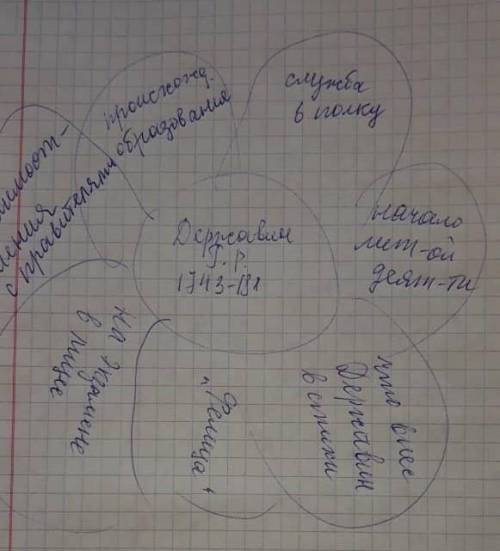 Державин
Г. Р.
1743-181
происхожд.
образование
служба
в полку
начало
лит-ой
деят-ти
что внес
Державин
в стихи
"Фелица"
На экзамене
в лицее
с правителями